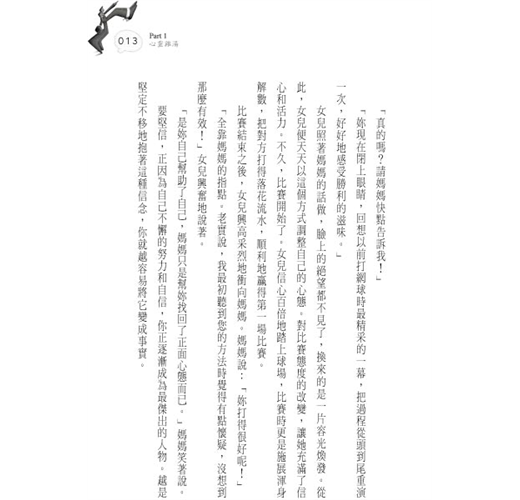 013
Part 1
心靈雞湯
「真的嗎？請媽媽快點告訴我！」
「妳現在閉上眼睛，回想以前打網球時最精采的一幕，把過程從頭到尾重演
一次，好好地感受勝利的滋味。」
女兒照著媽媽的話做，臉上的絕望都不見了，換來的是一片容光煥發。從
此，女兒便天天以這個方式調整自己的心態。對比賽態度的改變，讓她充滿了信
心和活力。不久，比賽開始了。女兒信心百倍地踏上球場，比賽時更是施展渾身
解數，把對方打得落花流水，順利地贏得第一場比賽。
比賽結束之後，女兒興高采烈地衝向媽媽。媽媽說：「妳打得很好呢！」
「全靠媽媽的指點。老實說，我最初聽到您的方法時覺得有點懷疑，沒想到
那麼有效！」女兒興奮地說著。
「是妳自己幫助了自己，媽媽只是幫妳找回了正面心態而已。」媽媽笑著說。
要堅信，正因為自己不懈的努力和自信，你正逐漸成為最傑出的人物。越是
堅定不移地抱著這種信念，你就越容易將它變成事實。